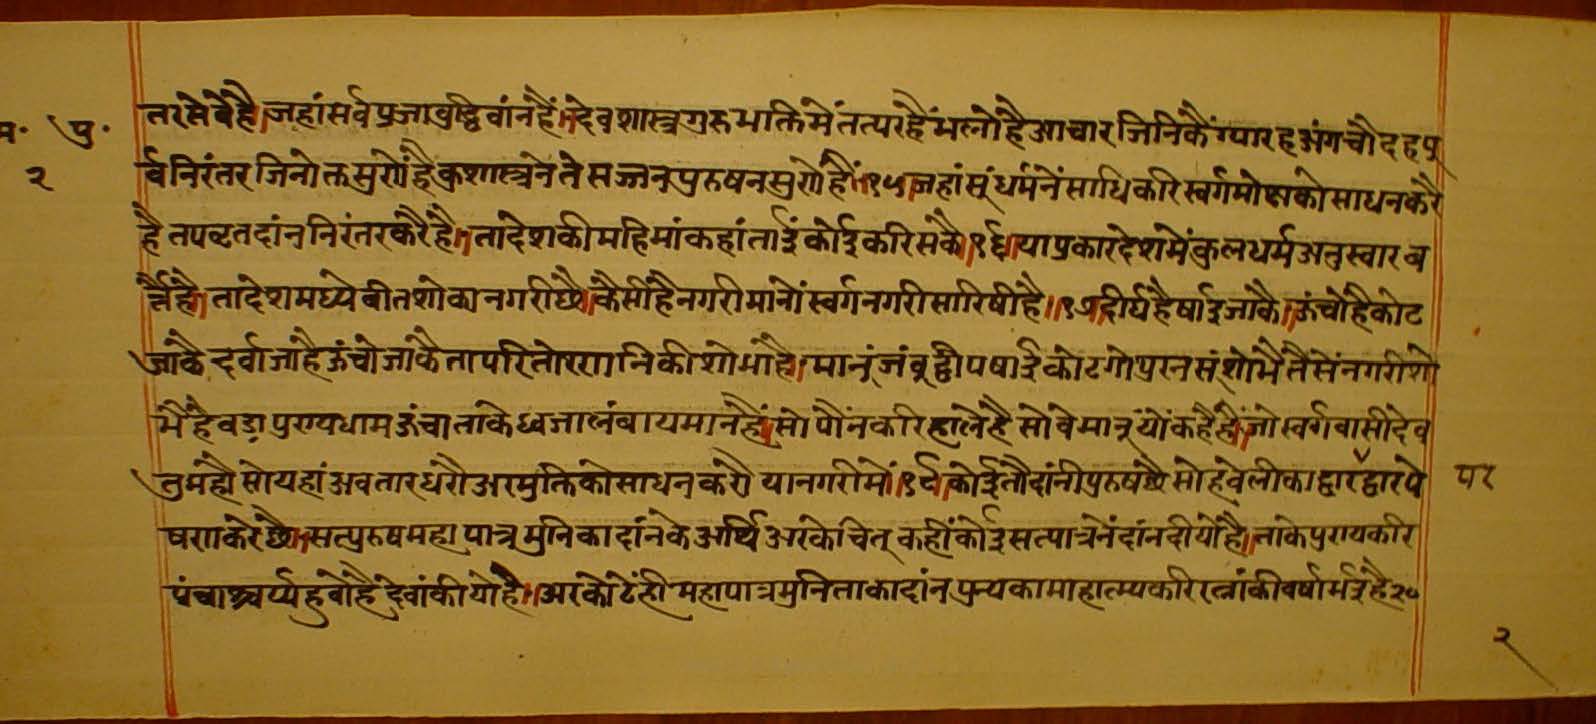 म॰ पु॰
२
तरसेवेहै।जहांसर्वप्रजाबुद्धिवांनहैं॥देवशास्त्रगुरुभक्तिमेंतत्परहैंभलोहैआचारजिनिकैंग्यारहअंगचौदहपू
र्वनिरंतरजिनोक्तसुणेंहैकुशास्त्रनेतेसज्जनपुरुषनसुणेहैं॥१५॥जहांसूंधर्मनेंसाधिकरिस्वर्गमोक्षकोसाधनकरै
हैतपव्रतदांननिरंतरकरैहै॥तादेशकीमहिमांकहांतांईकोईकरिसकै॥१६॥याप्रकारदेशमेंकुलधर्मअनुस्वारव
र्त्तैहै॥तादेशमध्येवीतशोकानगरीछै॥कैसीहैनगरीमानोंस्वर्गनगरीसारिषीहै॥१७॥दीर्घहैषाईजाकै॥ऊंचोहैकोट
जाकैदर्वाजाहैऊंचोजाकैतापरितोरणनिकीशोभाहै।मानूंजंबूद्वीपषाईकोटगोपुरनसूंशोभैतैसेंनगरीशो
भैहैवडापुण्यधामऊंचाताकेध्वजालंबायमानहैं॥सोपौंनकरिहालेहैसोवेमानूंयोंकहैहैं॥जोस्वर्गवासीदेव
तुमहौसोयहांअवतारधरौअरमुक्तिकोसाधनकरौयानगरीमें॥१९॥कोईतौदांनीपुरुषछैसोहवेलीकाद्वारद्वारपे
पर
षणकरेछै॥सत्पुरुषमहापात्रमुनिकादांनकेअर्थिअरकेचित्कहींकोईसत्पात्रनेंदांनदीयोहै॥ताकेपुण्यकरि
पंचाश्चर्य्यहुवोहैदेवांकीयोहै॥अरकोटेंहीमहापात्रमुनिताकादांनपुन्यकामाहात्म्यकरिरत्नांकीवर्षाभईहै२०
२